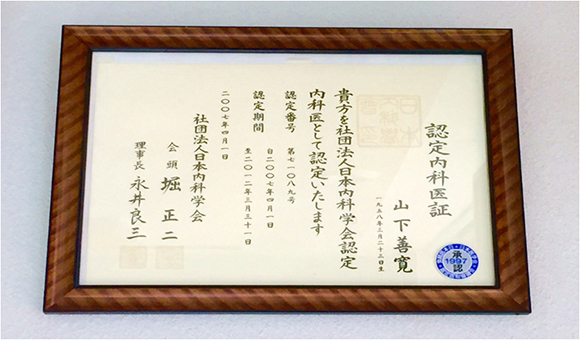 認定内科医証
山下善寛
一九五八年二月二十三日生
貴方を社団法人日本内科学会認定
内科医として認定いたします
認定番号 第七一〇八九号
認定期間 自二〇〇七年四月一日
至二〇一二年三月三十一日
二〇〇七年四月一日
社団法人日本内科学会
会頭 堀正二
理事長 永井良三
承認
1997